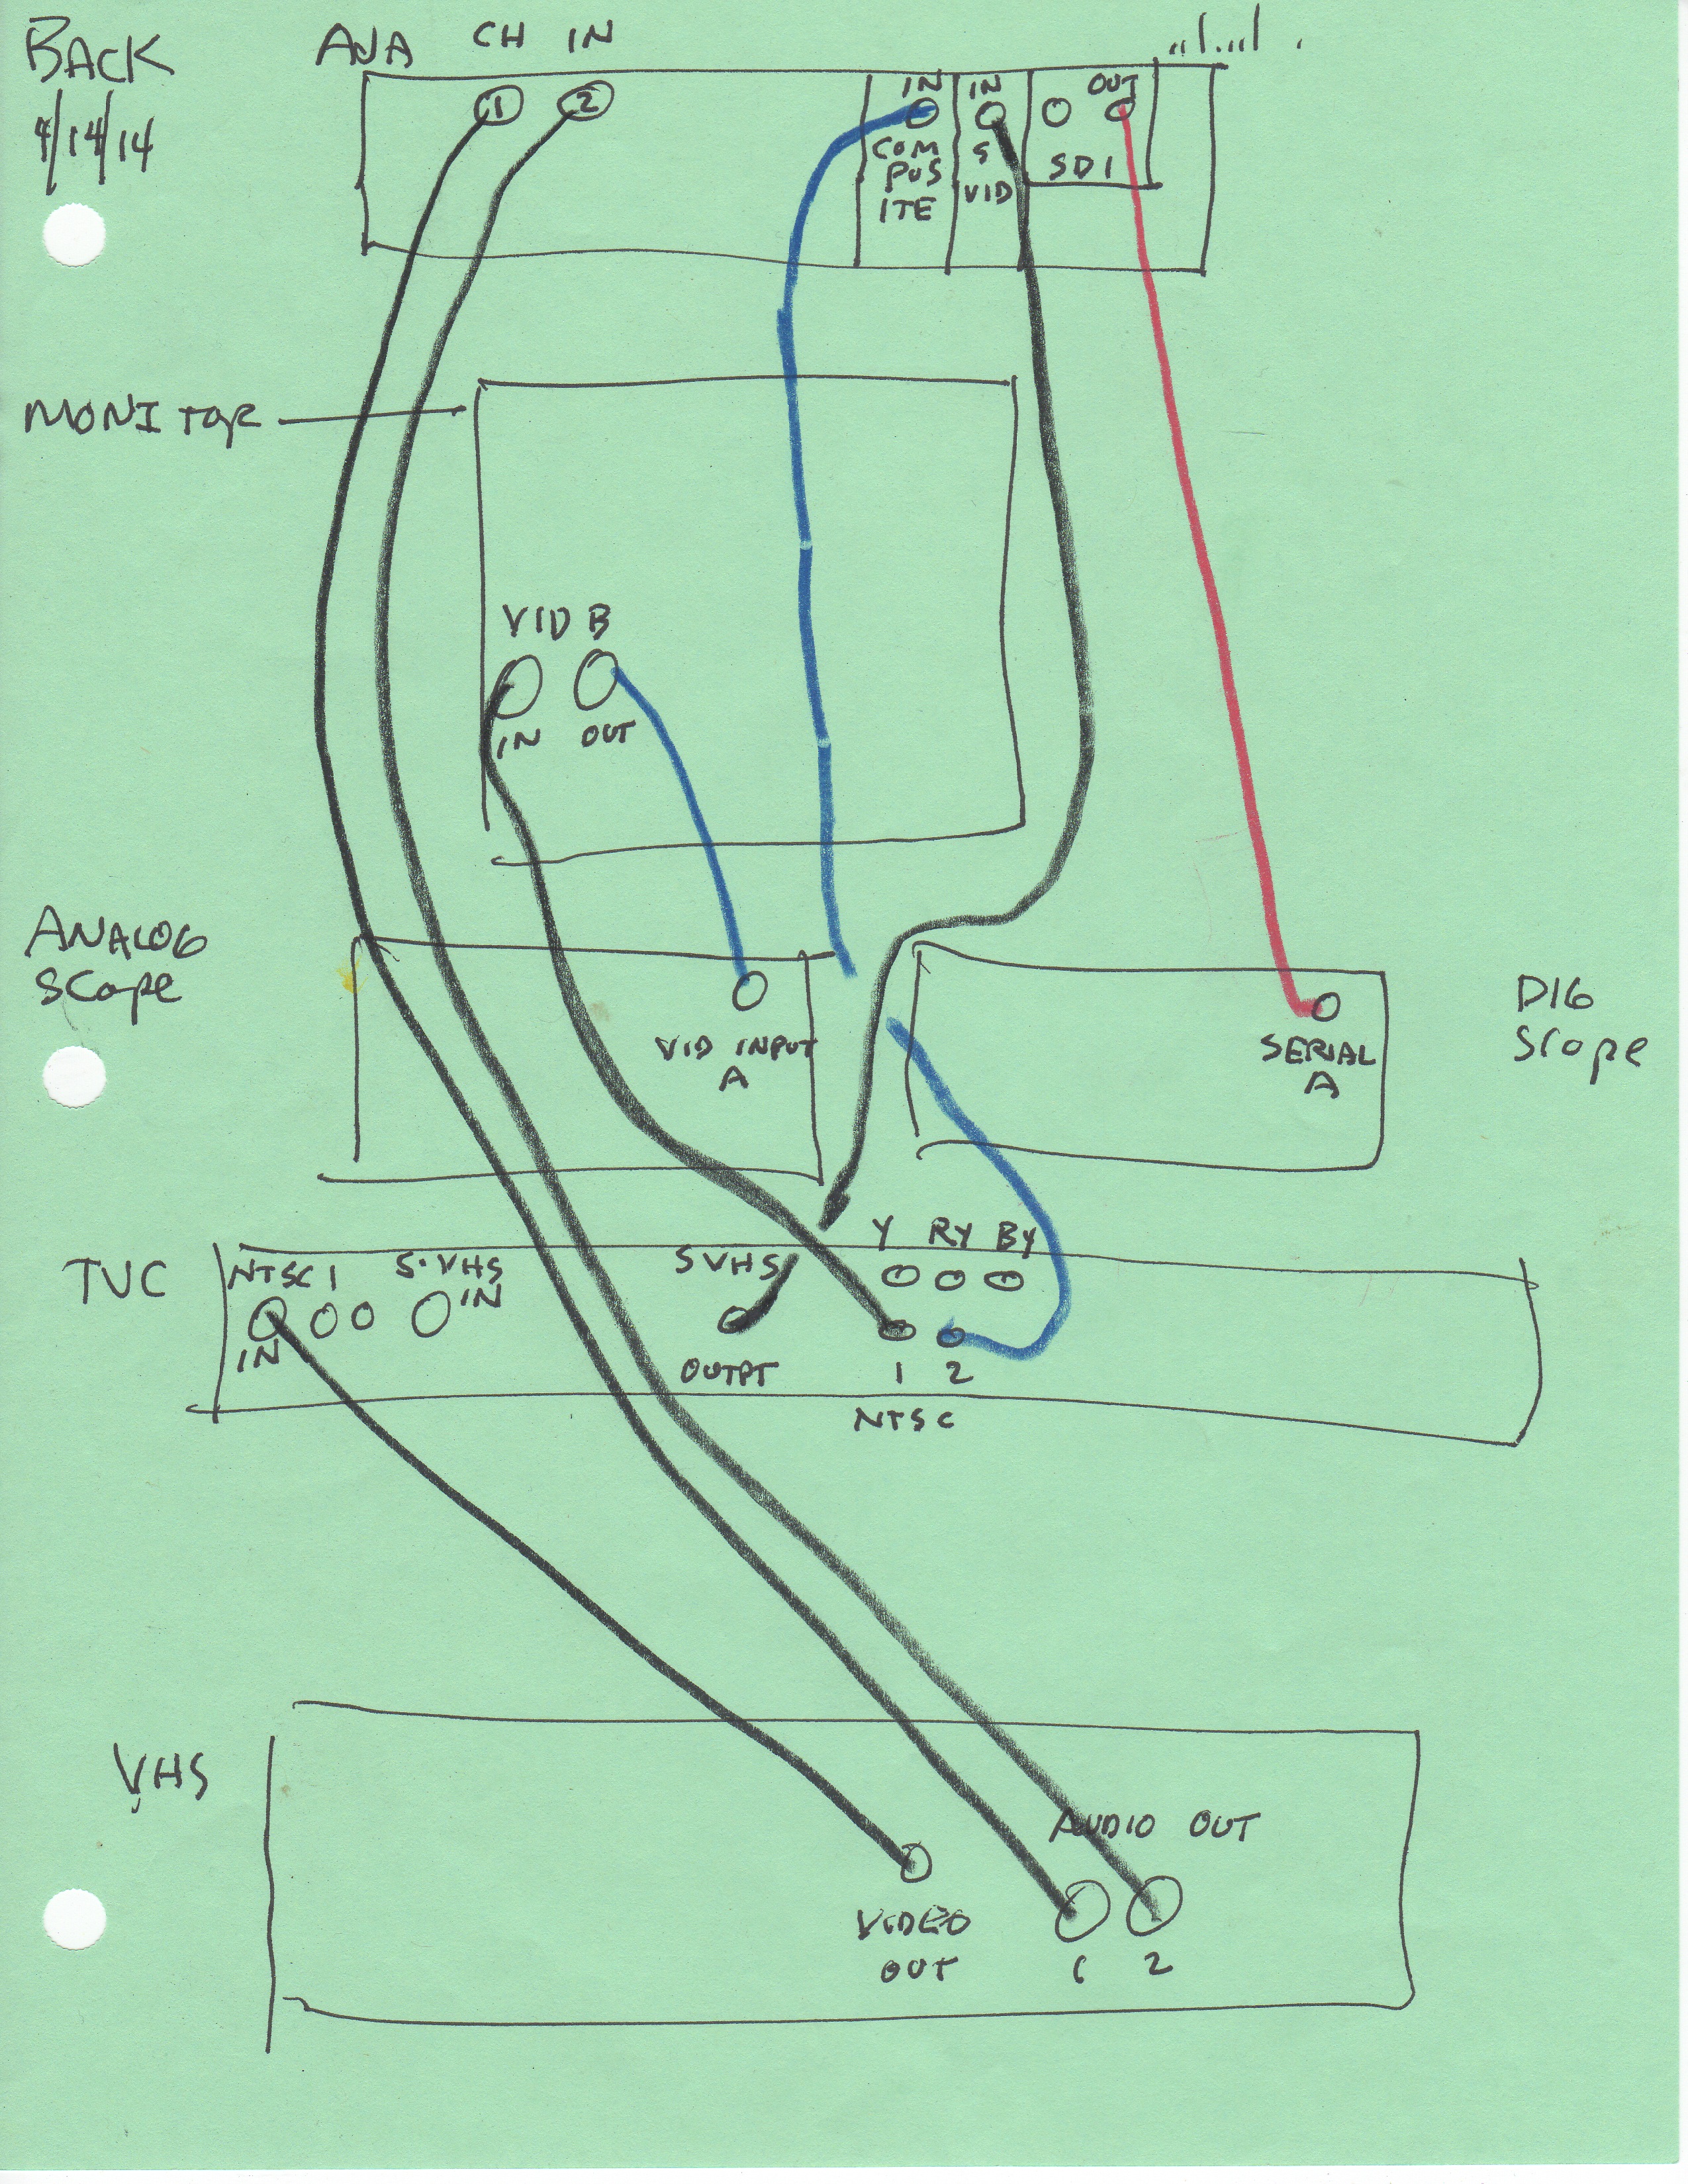 BACK
4/14/14
AJA CH IN
1 2
IN IN OUT
COM
POS
ITE
S
VID
SDI
MONITOR
VID B
IN OUT
ANALOG
SCOPE
VID INPUT
A
SERIAL
A
DIG
SCOPE
TVC
NTSC 1 S-VHS
IN
IN
SVHS
OUTPT
Y RY BY
1 2
NTSC
VHS
AUDIO OUT
VIDEO
OUT
1 2